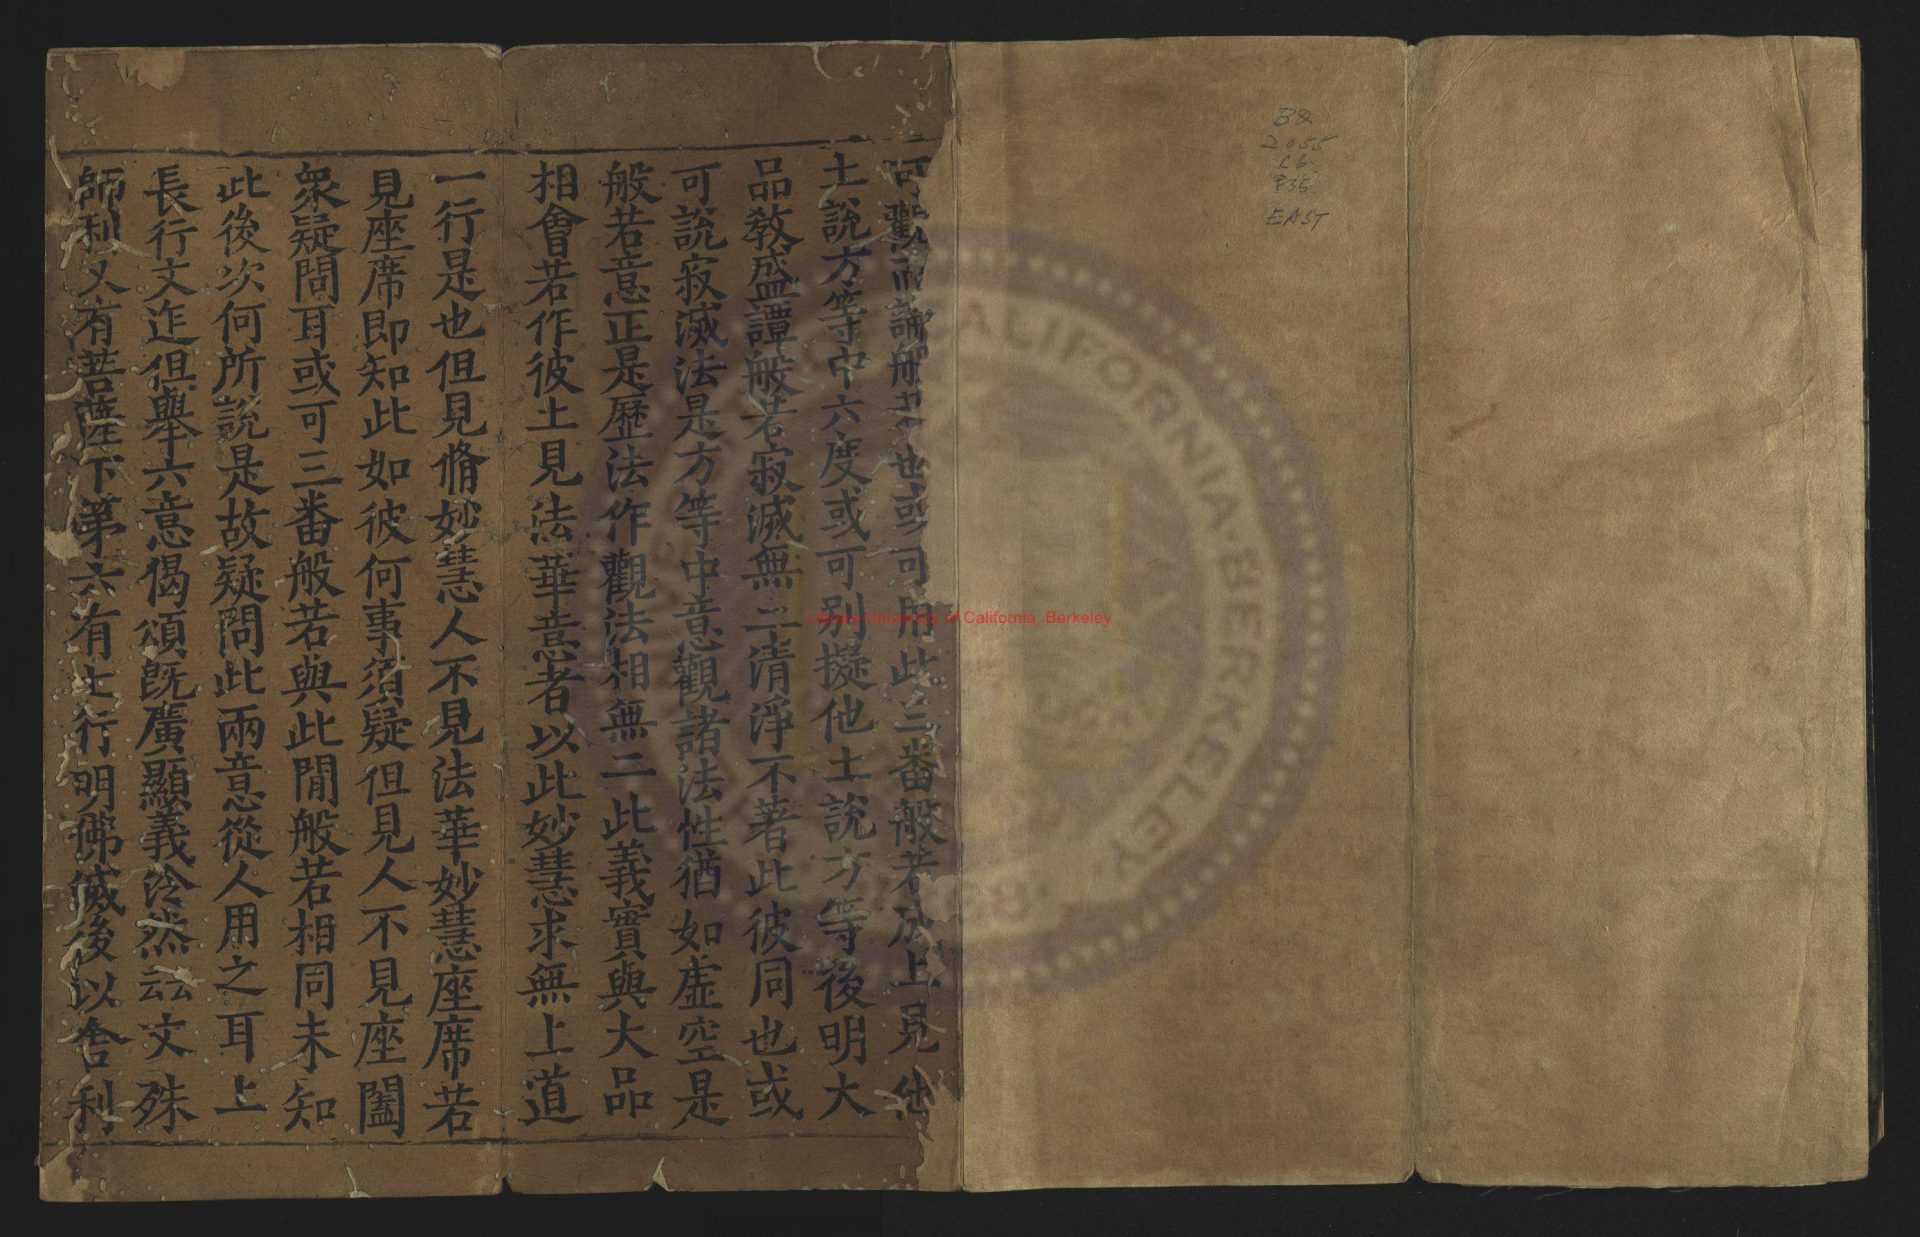 觀 般 也或可用此三番般若成上見他
土說方等中六度或可別擬他土說方等後明大
品教盛譚般若寂滅無二清淨不著此彼同也或
可說寂滅法是方等中意觀諸法性猶如虛空是
般若意正是歷法作觀法相無二此義實與大品
相會若作彼土見法華意者以此妙慧求無上道
一行是也但見脩妙慧人不見法華妙慧座席若
見座席即知此如彼何事須疑但見人不見座闔
衆疑問耳或可三番般若與此間般若相同未知
此後次何所說是故疑問此兩意從人用之耳上
長行文迮但舉六意偈頌旣廣顯義泠然云云文殊
師利又有菩薩下第六有七行明佛滅後以舍利
BQ
2055
C6
P35
EAST
Library University of California, Berkeley
CALIFORNIA·BERKELEY
1868